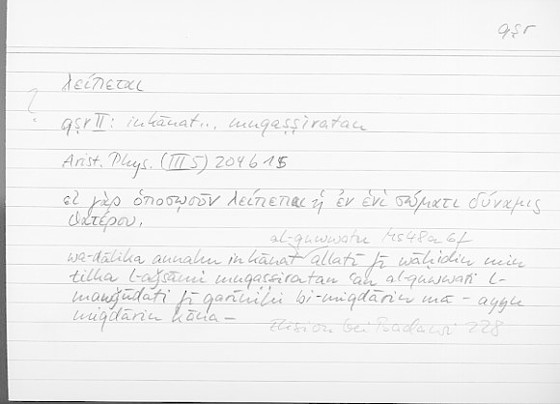 qṣr
λείπεται
?
qṣr II: in kānat... muqaṣṣiratan
Arist. Phys. (III 5) 204 b 15
εἰ γὰρ ὁποσῳοῦν λείπεται ἡ ἐν ἑνὶ σώματι δύναμις
θατέρου.
al-quwwatu Hs 48a 6f
wa-ḏālika annahu in kānat allatī fī wāḥidin min
tilka l-aǧsāmi muqaṣṣiratan ʿan al-quwwati l-
mauǧūdati fī qarīnihi bi-miqdārin mā – ayyu
miqdārin kāna – Elision bei Badawi 228